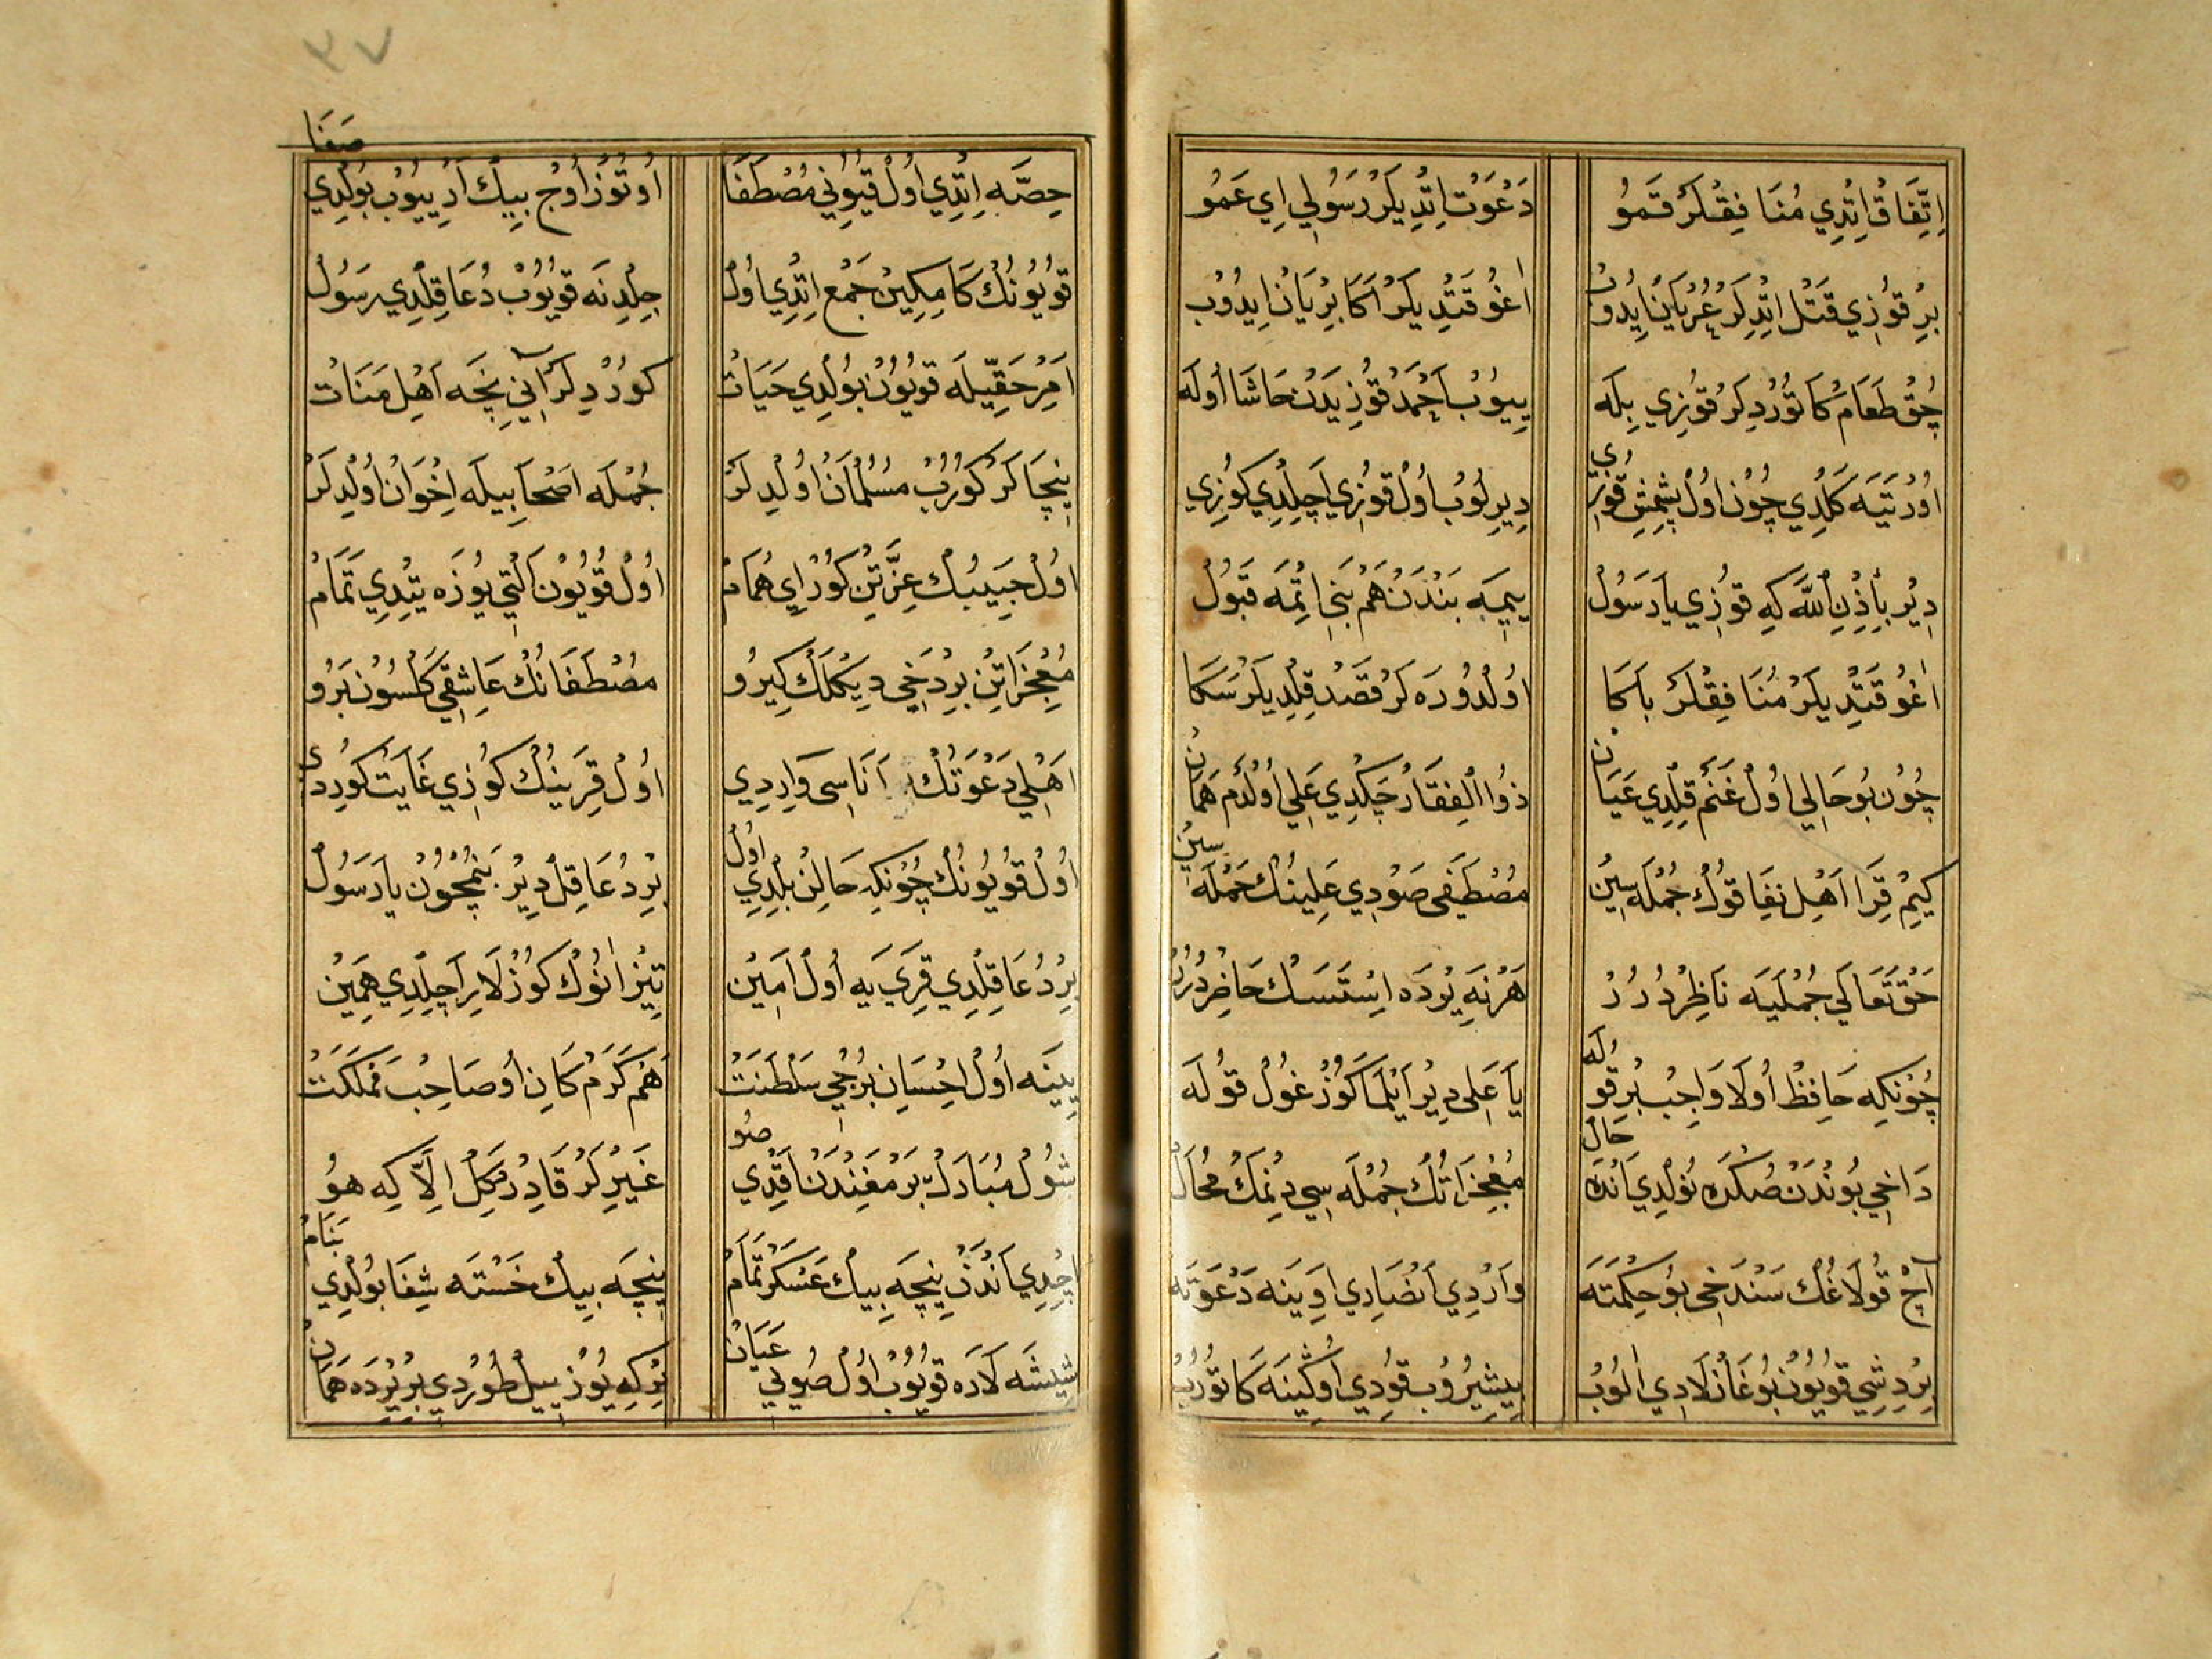 اِتِّفَاقْ اِتْدِي مُنَا فِقْلَرْ قَمُو دَعْوَتْ اِتْدِيلَرْ رَسُولِي اِي عَمُو
بِرْ قُوزِي قَتْلْ اِتْدِلَرْ عُرْيَانْ اِيدُوبْ اَغُو قَتْدِيلَرْ اَكَا بِرْيَانْ اِيدُوبْ
چُقْ طَعَامْ كَتُورْدِلَرْ قُوزِي بِلَه يِيوُبْ اَحْمَدْ قُوزِيدَنْ حَاشَا اُولَه
اُورْتَيَه كَلْدِي چُونْ اُولْ پِشْمِشْ قُوزِي دِيرِلُوبْ اُولْ قُوزِي اَچِلْدِي كُوزِي
دِيرْ بِأِذْنِ اللّٰه كِه قُوزِي يَا رَسُولْ يِيمَه بَنْدَنْ هَمْ بَنِي اِتْمَه قَبُولْ
اَغُو قَتْدِيلَرْ مُنَا فِقْلَرْ بَاكَا اُولْدُورَه لَرْ قَصْدْ قِلْدِيلَرْ سَكَا
چُونْ بُو حَالِي اُولْ غَنَمْ قِلْدِي عَيَانْ ذُوا الْفِقَارْ چَكْدِي عَلِي اُولْدَمْ هَمَانْ
كِيمْ قِرَا اَهْلِ نِفَاقُوكْ جُمْلَه سِينْ مُصْطَفَى صَوْدِي عَلِينُكْ حَمْلَه سِينْ
حَقْ تَعَالَي جُمْلَيَه نَاظِرْدُرُرْ هَرْ نَه يِرْدَه اِسْتَسَكْ حَاضِرْدُرُرْ
چُونْكِه حَافِظْ اُولَا وَاجِبْ بِرْ قُولَه يَا عَلِي دِيرْ اَيْلَمَا كُوزْ غُولْ قُولَه
دَاخِي بُونْدَنْ صُكْرَه نُولْدِي اَنْدَه حَالْ مُعْجِزَاتُكْ جُمْلَه سِي دِنْمَكْ مُحَالْ
آچْ قُولَاغُكْ سَنْدَخِي بُو حِكْمَتَه وَارْدِي اَنْصَارِي اَوِينَه دَعْوَتَه
بِرْ دِشِي قُويُونْ بُوغَازْلَادِي اَلُوبْ پِيشِيرُوبْ قُودِي اُوكِينَه كَتُورُبْ
حِصَّه اِتْدِي اُولْ قُيُونِي مُصْطَفَا اُوتُوزْ اُوچْ بِيكْ اَرْ يِيُوبْ بُولْدِي صَفَا
قُويُونُكْ كَامِكِينْ جَمْعْ اِتْدِي اُولْ جِلْدِنَه قُويُوبْ دُعَا قِلْدِي رَسُولْ
اَمْرِ حَقِّيلَه قُويُونْ بُولْدِي حَيَاتْ كُورْدِلَرْ آنِي نِچَه اَهْلِ مَنَاتْ
نِيچَا لَرْ كُورُبْ مُسُلْمَانْ اُولْدِلَرْ جُمْلَه اَصْحَابِيلَه اِخْوَانْ اُولْدِلَرْ
اُولْ حَبِيبُكْ عِزَّتِنْ كُورْ اِي هُمَامْ اُولْ قُويُونْ اَلْتِي يُوزَه يَتْدِي تَمَامْ
مُعْجِزَاتِنْ بِرْ دَخِي دِيكْلَكْ كِيرُو مُصْطَفَانُكْ عَاشِقِي كَلْسُونْ بَرُو
اَهْلِي دَعْوَتُكْ اَنَاسِي وَارِدِي اُولْ قَرِينُكْ كُوزِي غَايَتْ كُورِدِي
اُولْ قُويُونُكْ چُونْكِه حَالِنْ بِلْدِي اُولْ بِرْ دُعَا قِلْ دِيرْ بَنِمْچُونْ يَا رَسُولْ
بِرْ دُعَا قِلْدِي قَرِي يَه اُولْ اَمِينْ تِيزْ اَنُوكْ كُوزْلَارِ اَچِلْدِي هَمِينْ
يِينَه اُولْ اِحْسَانِ بُرْجِي سَلْطَنَتْ هَمْ كَرَمْ كَانِ اُو صَاحِبْ مَمْلَكَتْ
شُولْ مُبَارَكْ بَرْمَغِنْدَنْ اَقْدِي صُو غَيْرِلَرْ قَادِرْ دَكِلْ اِلَّا كِه هُو
اِچْدِي اَنْدَنْ نِيچَه بِيكْ عَسْكَرْ تَمَامْ نِيچَه بِيكْ خَسْتَه شِفَا بُولْدِي بَنَامْ
شِيشَه لَارَه قُويُوبْ اُولْ صُوئِي عَيَانْ بِرْكِه يُوزْ يِيلْ طُورْدِي بِرْ يِرْدَه هَمَانْ